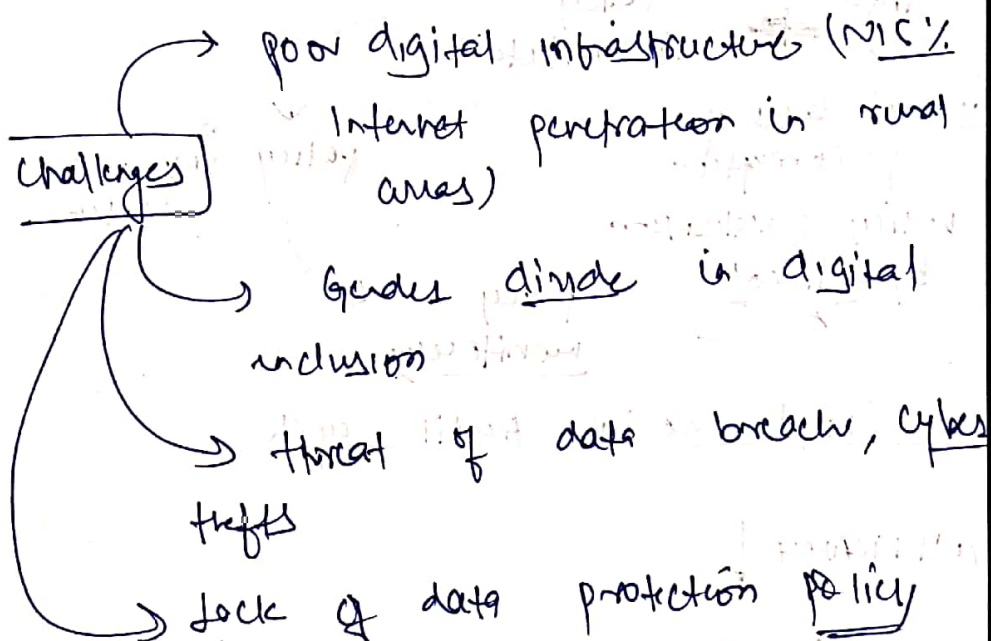 poor digital infrastructure (~15%
Internet penetration in rural
areas)
Challenges
Gender divide in digital
inclusion
threat of data breach, cyber
thefts
Lack of data protection policy